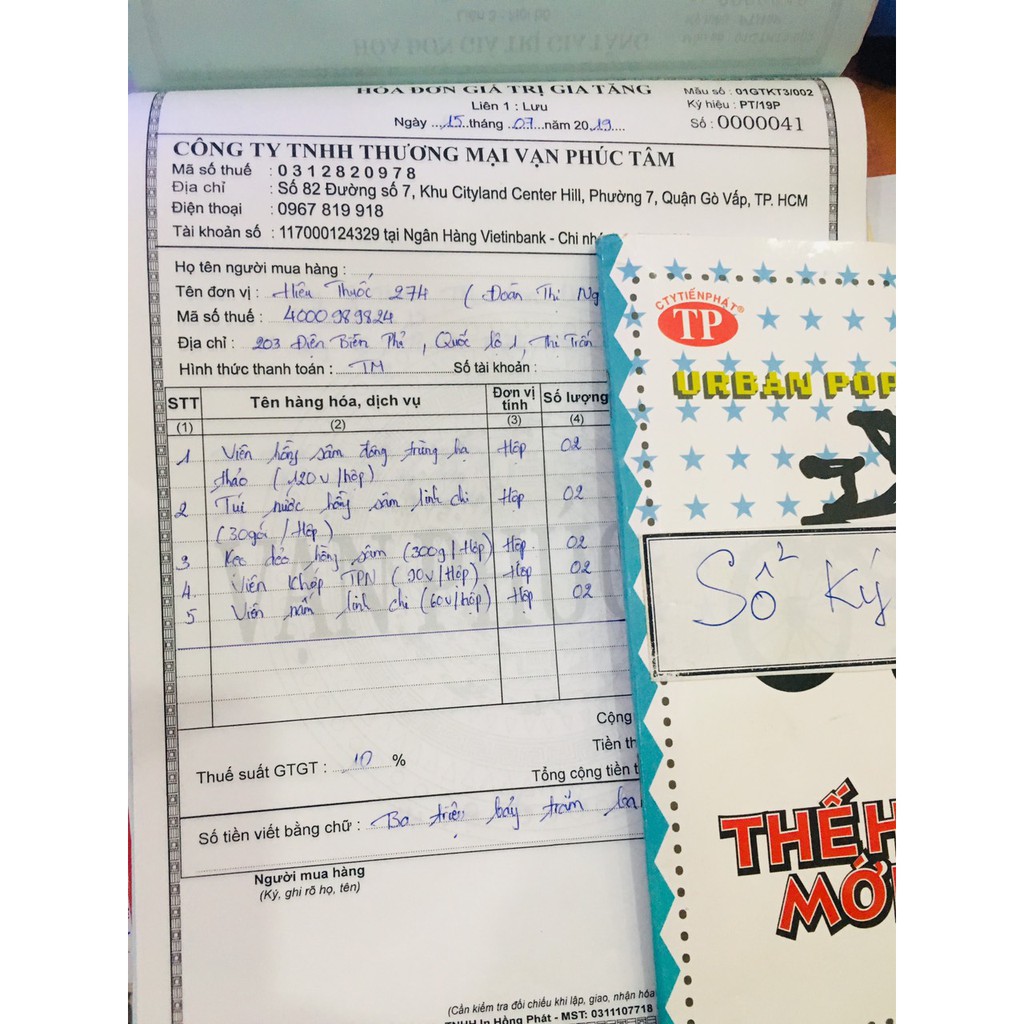 HÓA ĐƠN GIÁ TRỊ GIA TĂNG
Mẫu số : 01GTKT3/002
Liên 1 : Lưu
Ký hiệu : PT/19P
Ngày ...15..tháng ..07...năm 2019....
Số : 0000041
CÔNG TY TNHH THƯƠNG MẠI VẠN PHÚC TÂM
Mã số thuế : 0312820978
Địa chỉ : Số 82 Đường số 7, Khu Cityland Center Hill, Phường 7, Quận Gò Vấp, TP. HCM
Điện thoại : 0967 819 918
Tài khoản số : 117000124329 tại Ngân Hàng Vietinbank - Chi nhá
Họ tên người mua hàng :
Tên đơn vị : Hiệu Thuốc 274 ( Đoàn Thị Ng
Mã số thuế : 4000989824
Địa chỉ : 203 Điện Biên Phủ, Quốc lộ 1, Thị Trấn
Hình thức thanh toán : TM Số tài khoản :
STT Tên hàng hóa, dịch vụ Đơn vị tính Số lượng
(1) (2) (3) (4)
1 Viên hồng sâm đông trùng hạ Hộp 02
thảo (120v/hộp)
2 Túi nước hồng sâm linh chi Hộp 02
(30gói/Hộp)
3 Kẹo dẻo hồng sâm (300g/Hộp) Hộp 02
4. Viên Khớp TPN (90v/Hộp) Hộp 02
5 Viên nấm linh chi (60v/hộp) Hộp 02
Cộng
Thuế suất GTGT : 10 %
Tiền th
Tổng cộng tiền t
Số tiền viết bằng chữ : Ba triệu bảy trăm ba
Người mua hàng
(Ký, ghi rõ họ, tên)
(Cần kiểm tra đối chiếu khi lập, giao, nhận hóa
TNHH In Hồng Phát - MST: 0311107718
CTY TIẾN PHÁT®
TP
URBAN POP
Số 2 Ký
THẾ H
MỚI